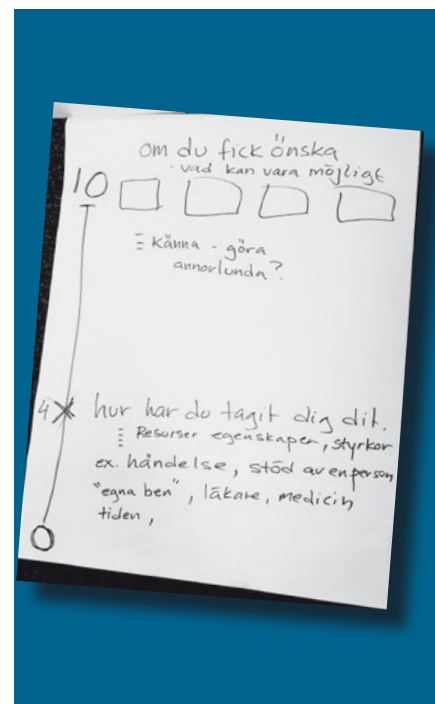 om du fick önska
- vad kan vara möjligt
10
Känna - göra
annorlunda?
4 hur har du tagit dig dit.
Resurser egenskaper, styrkor
ex. händelse, stöd av en person
"egna ben", läkare, medicin
tiden,
0